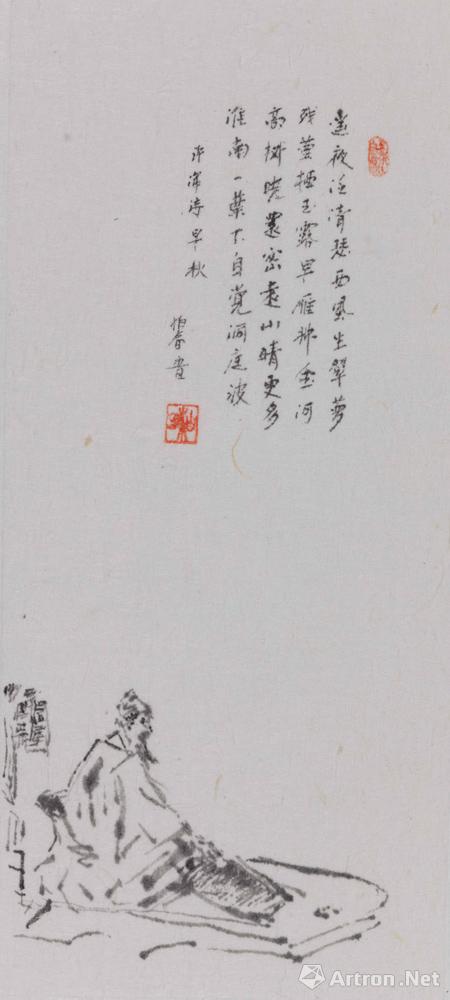 遥夜泛清瑟西風生翠萝
残螢栖玉露早雁拂金河
高树曉還密遠山晴更多
淮南一葉下自觉洞庭波
许浑诗早秋
Artron.Net